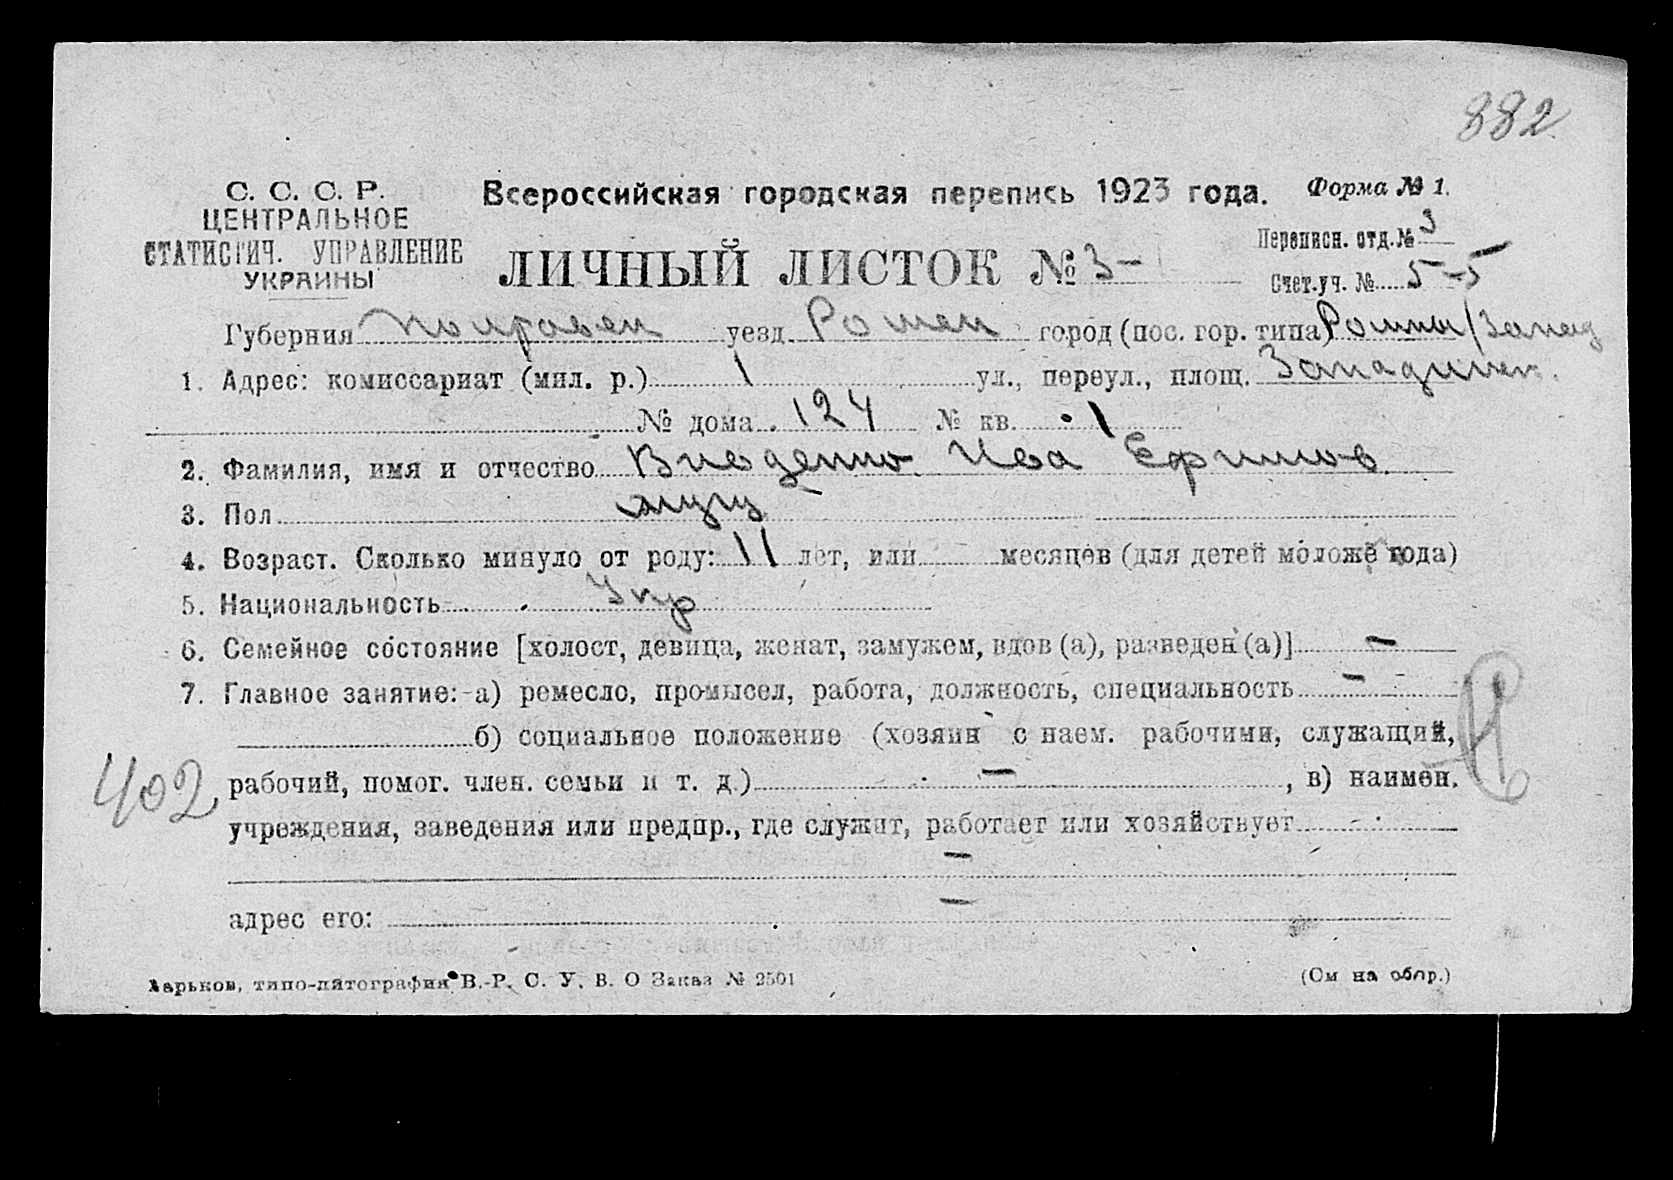 882
С. С. С. Р.
ЦЕНТРАЛЬНОЕ
СТАТИСТИЧ. УПРАВЛЕНИЕ
УКРАИНЫ
Всероссийская городская перепись 1923 года.
Форма № 1.
ЛИЧНЫЙ ЛИСТОК № 3-
Переписн. отд. № 3
Счет. уч. № 5-5
Губерния Полтавск уезд Ромен город (пос. гор. типа) Ромны/Запад
1. Адрес: комиссариат (мил. р.) 1 ул., переул., площ.
№ дома 124 № кв. 1
2. Фамилия, имя и отчество Ива Ефимов.
3. Пол муж
4. Возраст. Сколько минуло от роду: 11 лет, или месяцев (для детей моложе года)
5. Национальность Укр
6. Семейное состояние [холост, девица, женат, замужем, вдов (а), разведен (а)] —
7. Главное занятие: а) ремесло, промысел, работа, должность, специальность —
б) социальное положение (хозяин с наем. рабочими, служащий,
402
рабочий, помог. член. семьи и т. д.) — , в) наимен.
учреждения, заведения или предпр., где служит, работает или хозяйствует
—
адрес его: —
Харьков, типо-литография В.-Р. С. У. В. О Заказ № 2501
(См на обор.)